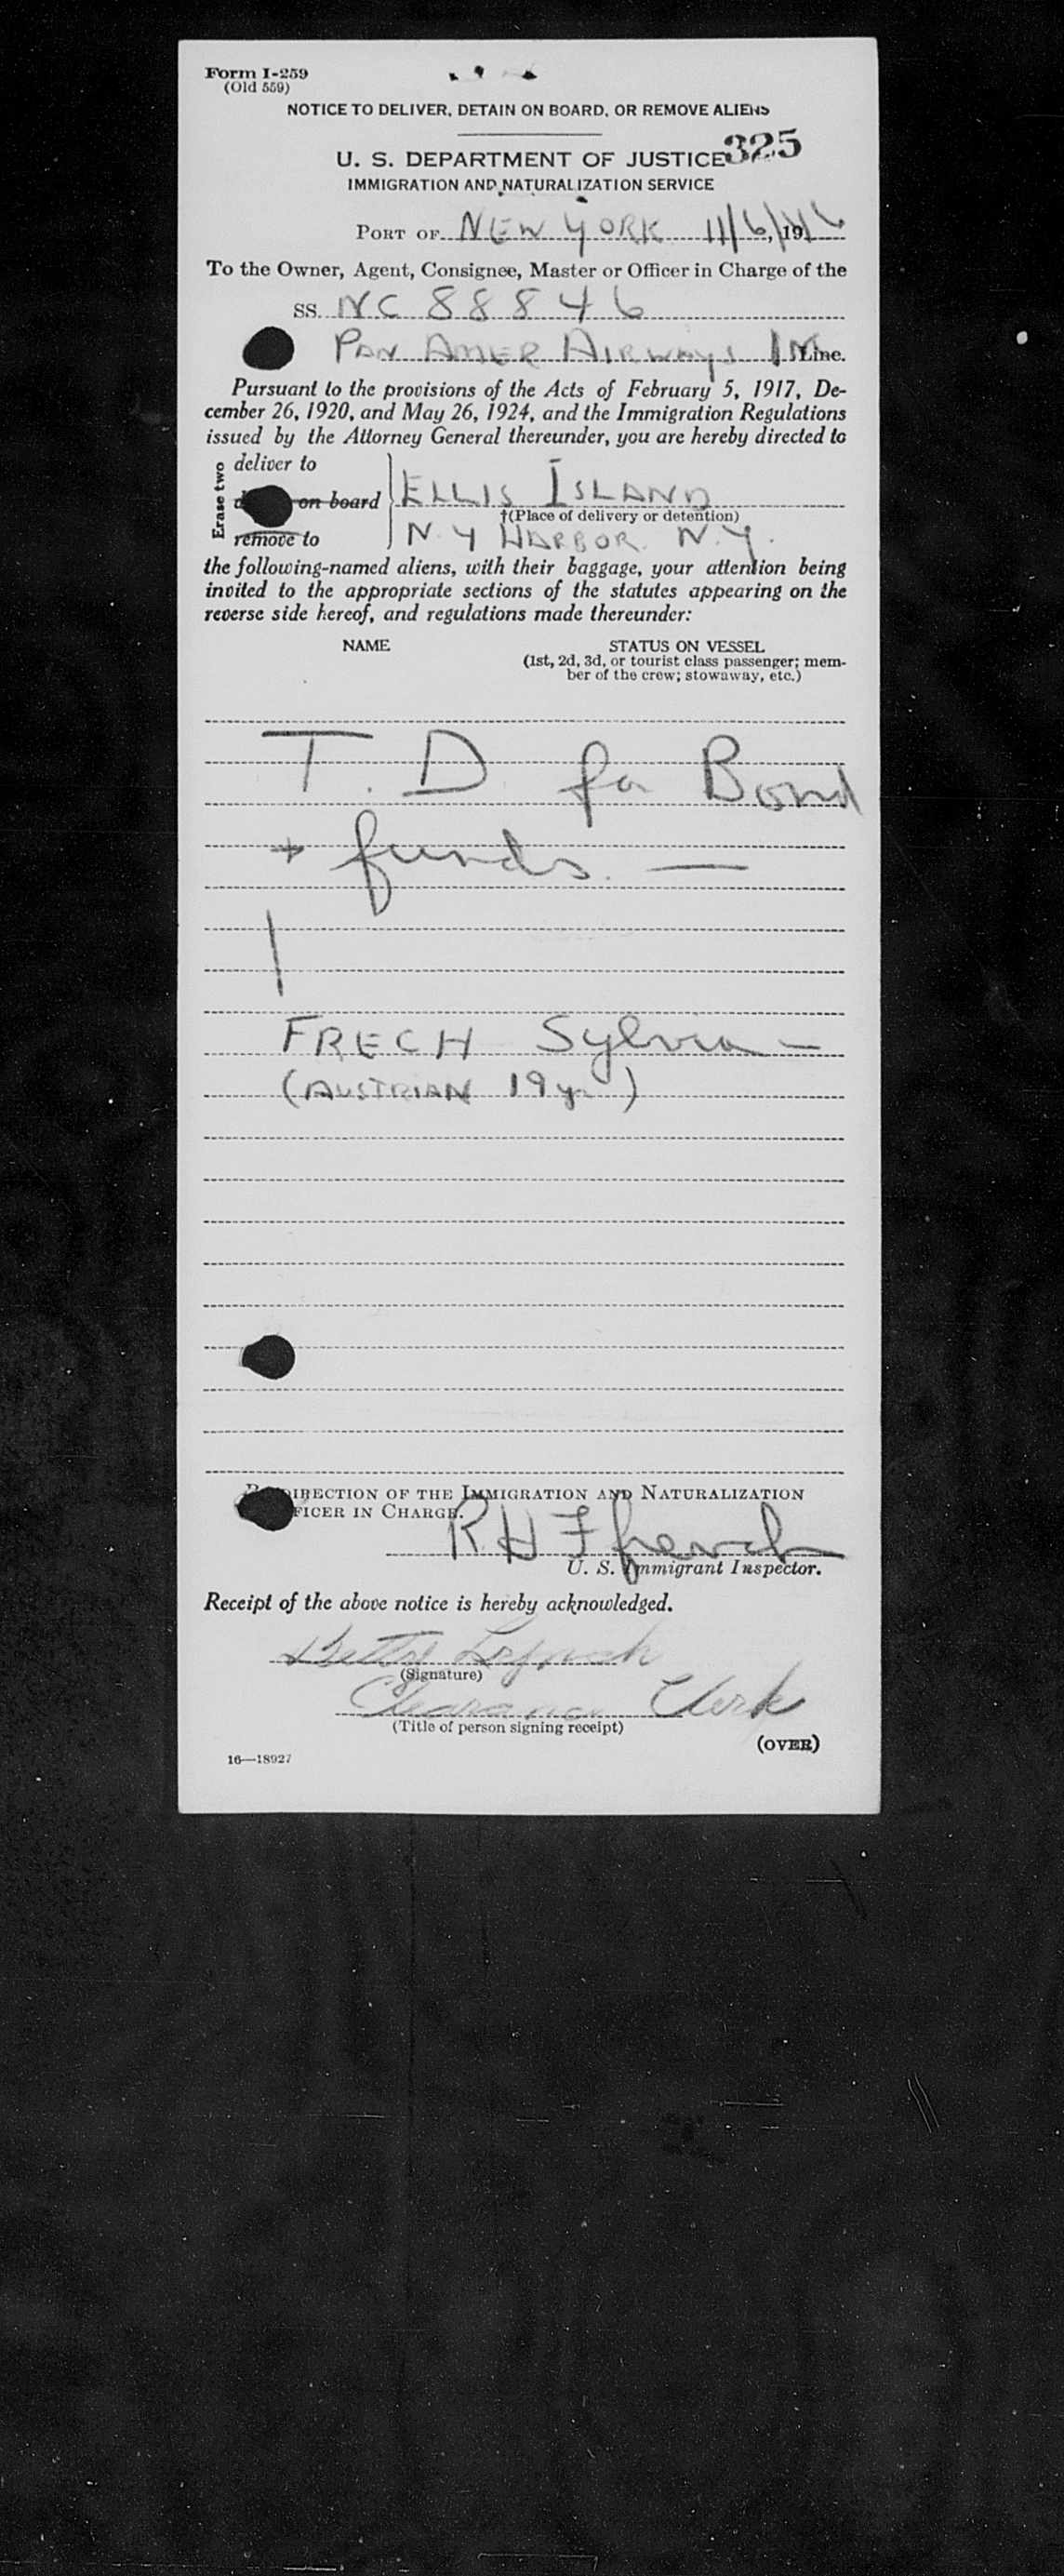 Form I-259
(Old 559)
NOTICE TO DELIVER, DETAIN ON BOARD, OR REMOVE ALIENS
U. S. DEPARTMENT OF JUSTICE 325
IMMIGRATION AND NATURALIZATION SERVICE
PORT OF NEW YORK 11/6/, 1946
To the Owner, Agent, Consignee, Master or Officer in Charge of the
SS. NC 88846
PAN AMER AIRWAYS IN Line.
Pursuant to the provisions of the Acts of February 5, 1917, De-
cember 26, 1920, and May 26, 1924, and the Immigration Regulations
issued by the Attorney General thereunder, you are hereby directed to
Erase two
deliver to
on board
remove to
ELLIS ISLAND
†(Place of delivery or detention)
N. Y HARBOR. N.Y.
the following-named aliens, with their baggage, your attention being
invited to the appropriate sections of the statutes appearing on the
reverse side hereof, and regulations made thereunder:
NAME STATUS ON VESSEL
(1st, 2d, 3d, or tourist class passenger; mem-
ber of the crew; stowaway, etc.)
T. D. for Bond
+ funds. —
FRECH Sylvia —
(AUSTRIAN 19 yr)
DIRECTION OF THE IMMIGRATION AND NATURALIZATION
FICER IN CHARGE.
R H Ffrench
U. S. Immigrant Inspector.
Receipt of the above notice is hereby acknowledged.
Betty Lynch
(Signature)
Clearance Clerk
(Title of person signing receipt)
(OVER)
16—18927